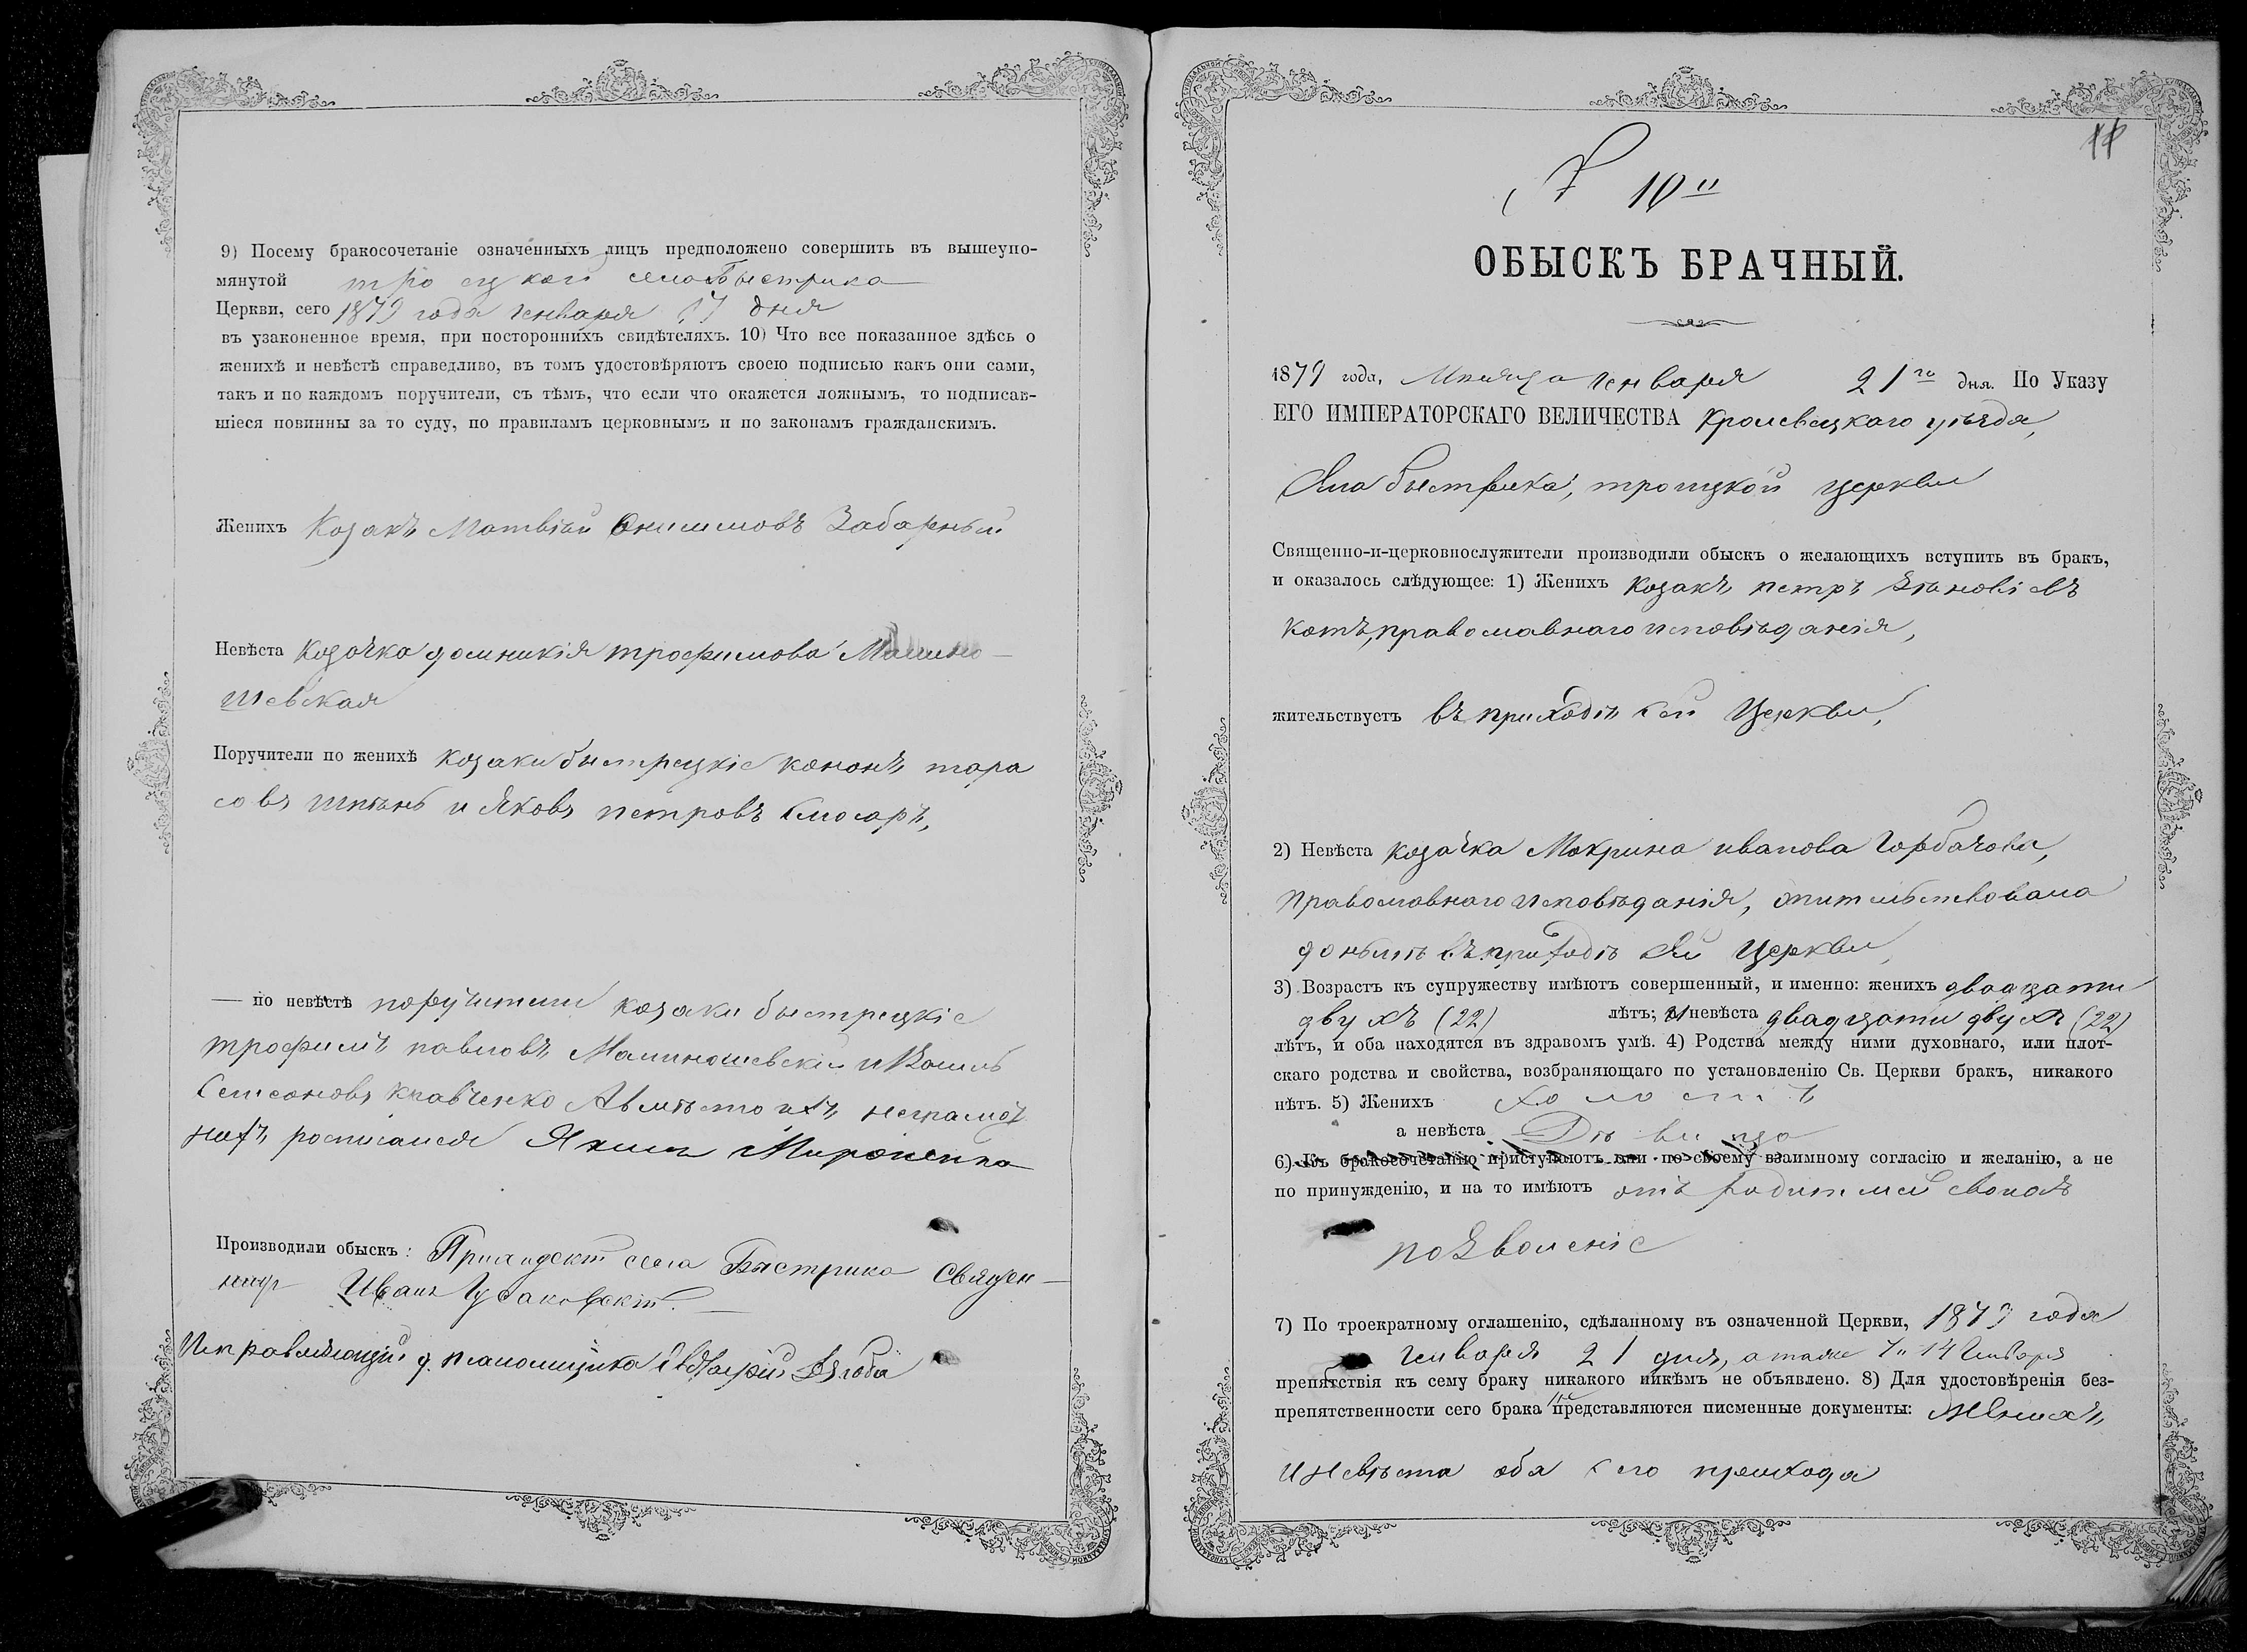 9) Посему бракосочетаніе означенныхъ лицъ предположено совершить въ вышеупо-
мянутой троицкой села Быстрика
Церкви, сего 1879 года генваря 17 дня
въ узаконенное время, при постороннихъ свидѣтеляхъ. 10) Что все показанное здѣсь о
женихѣ и невѣстѣ справедливо, въ томъ удостовѣряютъ своею подписью какъ они сами,
такъ и по каждомъ поручители, съ тѣмъ, что если что окажется ложнымъ, то подписав-
шіеся повинны за то суду, по правиламъ церковнымъ и по законамъ гражданскимъ.
Женихъ Козакъ Матвѣй Онисимовъ Забарный
Невѣста Козачка домникія трофимова Малино-
шевская
Поручители по женихѣ козаки быстрецкіе кононъ тара
совъ шпѣнь и Яковъ петровъ слюсарь,
— по невѣстѣ поручители козаки быстрецкіе
трофимъ павловъ Малиношевскій и
Семеоновъ кравченко А вмѣсто ихъ неграмот
ныхъ росписался Яким Мироненко
Производили обыскъ: села Быстрика Священ-
никъ Иванъ
Исправляющій д. псаломщика
11
№ 10й
ОБЫСКЪ БРАЧНЫЙ.
1879 года, Мѣсяца генваря 21го дня. По Указу
ЕГО ИМПЕРАТОРСКАГО ВЕЛИЧЕСТВА Кролевецкаго уѣзда,
Села быстрика, троицкой церкви
Священно-и-церковнослужители производили обыскъ о желающихъ вступить въ бракъ,
и оказалось слѣдующее: 1) Женихъ козакъ петръ Зѣновіевъ
котъ, православнаго исповѣданія,
жительствуетъ въ приходѣ сей Церкви,
2) Невѣста козачка Мокрина иванова Горбачова,
православнаго исповѣданія, жительствовала
донынѣ въ приходѣ сей Церкви,
3) Возрастъ къ супружеству имѣютъ совершенный, и именно: женихъ двадцати
двухъ (22) лѣтъ; а невѣста двадцати двухъ (22)
лѣтъ, и оба находятся въ здравомъ умѣ. 4) Родства между ними духовнаго, или плот-
скаго родства и свойства, возбраняющаго по установленію Св. Церкви бракъ, никакого
нѣтъ. 5) Женихъ холостъ
а невѣста Дѣвица
6) Къ бракосочетанію приступаютъ они по своему взаимному согласію и желанію, а не
по принужденію, и на то имѣютъ отъ родителей своихъ
позволеніе
7) По троекратному оглашенію, сдѣланному въ означенной Церкви, 1879 года
Генваря 21 дня, а также 7 и 14 Генваря
препятствія къ сему браку никакого никѣмъ не объявлено. 8) Для удостовѣренія без-
препятственности сего брака не представляются писменные документы: Женихъ
и невѣста оба сего прихода